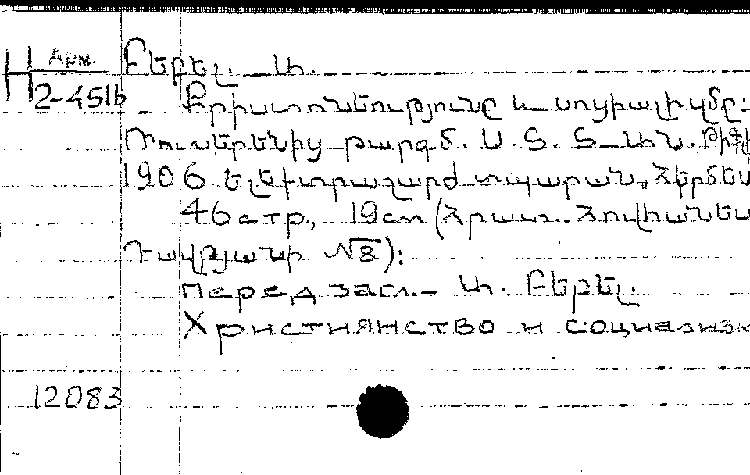 Арм. Բեբել. Ա.
Н 2-451b
Քրիստոնեությունը և սոցիալիզմը:
Ռուսերենից թարգմ. Ս. Տ. Տ—ան. Թիֆլ
1906 Ելեկտրաշարժ տպարան "Հերմես
46 стр., 19см (Հրատ. Հովհաննես
Դավթյանի №8):
Перед загл.- Ա. Բեբել.
Христианство и социализм
12083